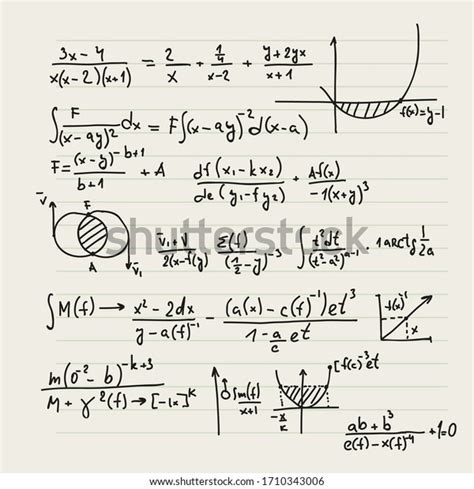 3x-4 / x(x-2)(x+1) = 2/x + 1/4 / x-2 + y+2yx / x+1
f(x)=y-1
∫ F/(x-ay)² dx = F∫(x-ay)⁻² d(x-a)
F= (x-y)^(-b+1) / b+1 + A
df(x₁-kx₂) / de(y₁-fy₂) + Af(x) / -1(x+y)³
V̄ F A V̄₁
V̄₁+V / 2(x-f(y) Σ(f) / (1/2-y)⁻³ ∫ t²dt / (t²-a²)^(a-1) 1arctg 1/2a
shutterstock
∫M(f) → x²-2dx / y-a(f)⁻¹ - (a(x)-c(f)⁻¹)et³ / 1-a/c et
f(x)⁻¹ x
m(0⁻²-b)^(-k+3) / M+γ²(f)→[-1x]^k
∫sm(f) / x+1
-x/k
[f(c)⁻³et
ab+b³ / e(f)-x(f)⁻⁴ +1=0
shutterstock.com · 1710343006